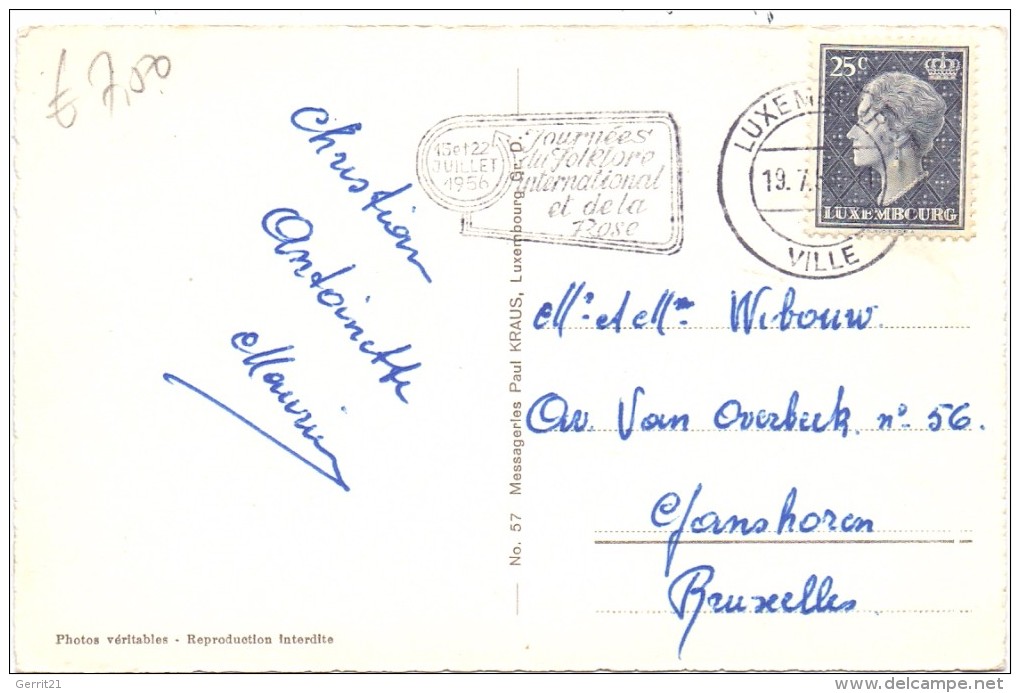 7 7,50
Christian
Antoinette
15 et 22
JUILLET
1956
Journées
du folklore
international
et de la
Rose
LUXEMBOURG
19.7.5
VILLE
25c
LUXEMBOURG
Mr et Mme Wibouw.
Av. Van Overbeek no 56.
Ganshoren
Bruxelles
No. 57 Messageries Paul KRAUS, Luxembourg Gr.-D.
Photos véritables - Reproduction interdite
Gerrit21
www.delcampe.net